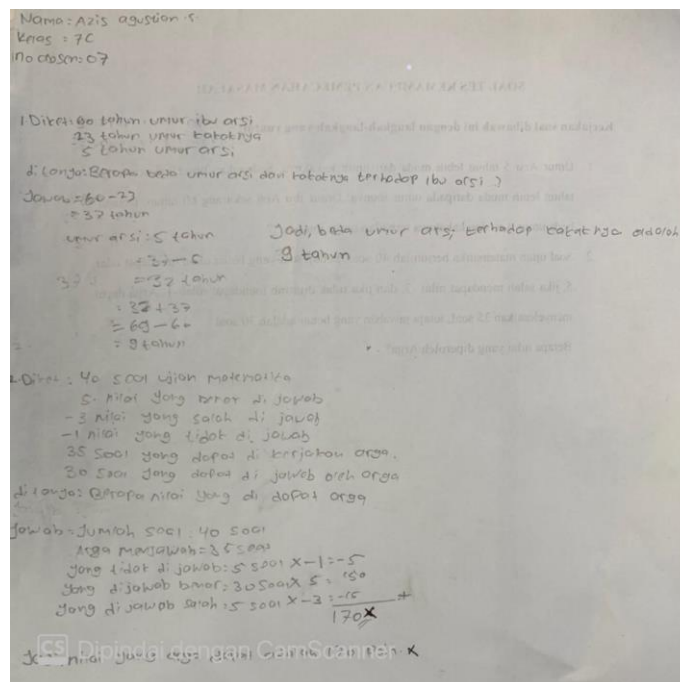 Nama: Azis agustian .s
Kelas : 7C
no absen: 07
1 Diket: 60 tahun umur ibu arsi
23 tahun umur kakaknya
5 tahun umur arsi
di tanya: Berapa beda umur arsi dan kakaknya terhadap ibu arsi ?
Jawab = 60 - 23
= 37 tahun
umur arsi: 5 tahun
= 37 - 5
= 32 tahun
= 32 + 37
= 69 - 60
= 9 tahun
Jadi, beda umur arsi terhadap kakaknya adalah
9 tahun
2. Diket : 40 soal ujian matematika
5 nilai yang benar di jawab
-3 nilai yang salah di jawab
-1 nilai yang tidak di jawab
35 soal yang dapat di kerjakan arga.
30 soal yang dapat di jawab oleh arga
di tanya: Berapa nilai yang di dapat arga
Jawab = Jumlah soal : 40 soal
Arga menjawab = 35 soal
yang tidak di jawab: 5 soal x -1 = -5
yang dijawab benar: 30 soal x 5 = 150
yang di jawab salah: 5 soal x -3 = -15 +
170 x
Jadi nilai yang arga x
CS Dipindai dengan CamScanner